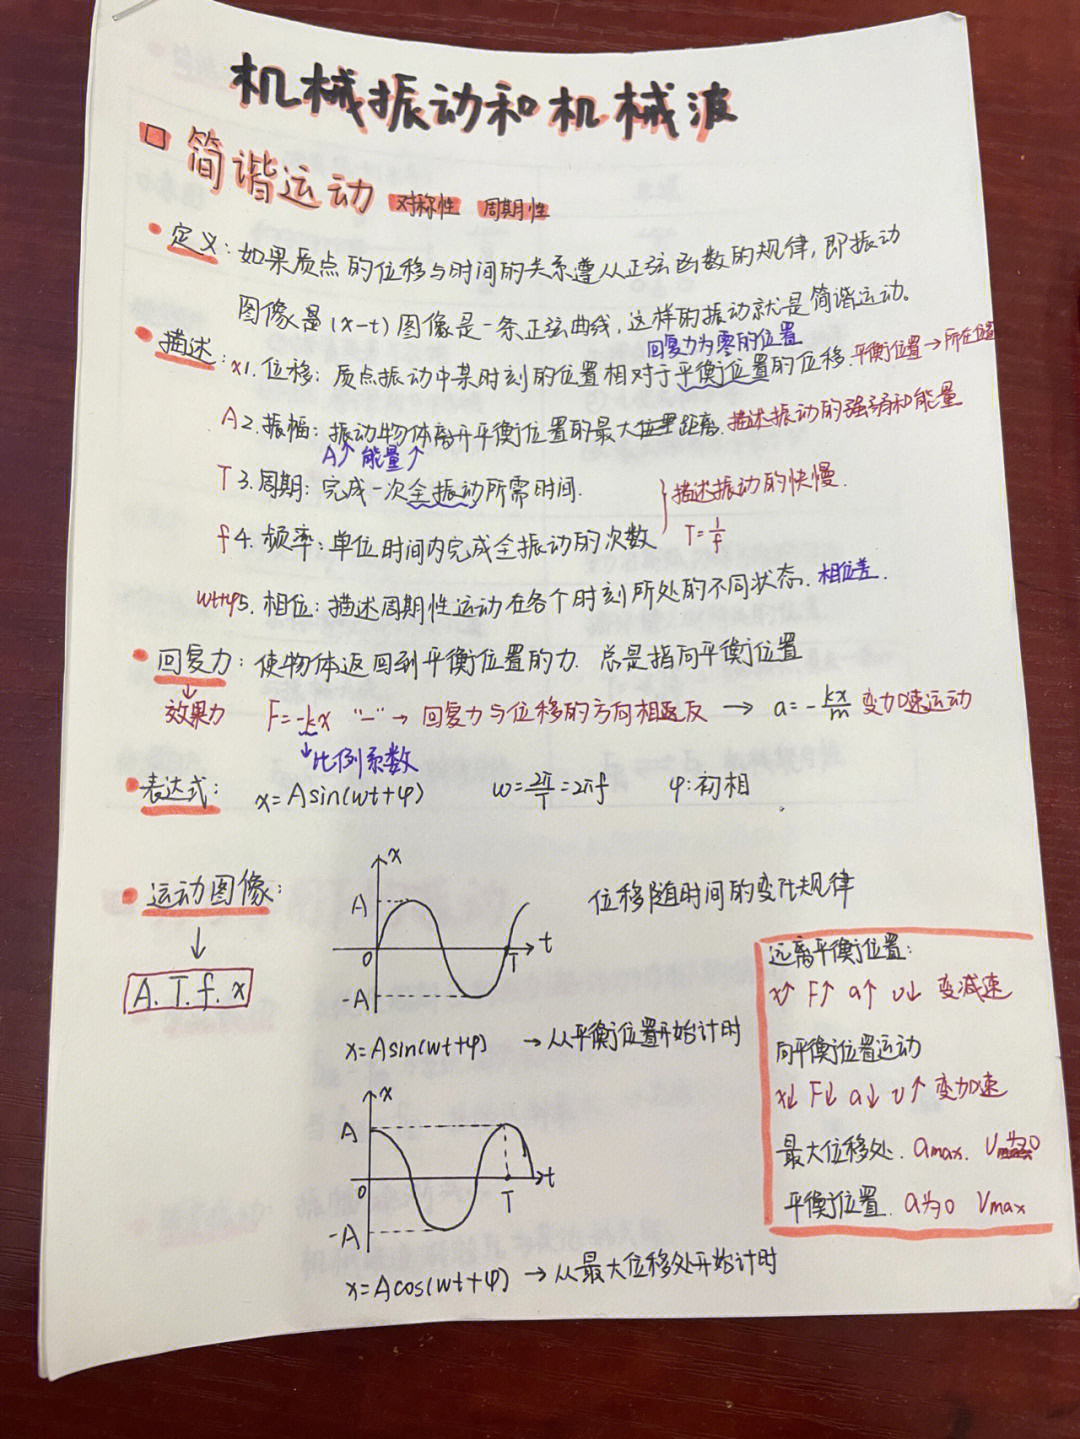 机械振动和机械波
简谐运动 对称性 周期性
定义：如果质点的位移与时间的关系遵从正弦函数的规律，即振动
图像是(x-t)图像是一条正弦曲线，这样的振动就是简谐运动。
回复力为零的位置
描述：x1.位移：质点振动中某时刻的位置相对于平衡位置的位移.平衡位置→所在位置
A2.振幅：振动物体离开平衡位置的最大距离.描述振动的强弱和能量
A↑能量↑
T3.周期：完成一次全振动所需时间.
描述振动的快慢.
f4.频率：单位时间内完成全振动的次数 T=1/f
wt+φ5.相位：描述周期性运动在各个时刻所处的不同状态.相位差.
回复力：使物体返回到平衡位置的力.总是指向平衡位置
↓
效果力 F=-kx "-"→回复力与位移的方向相反→a=-kx/m 变加速运动
↓比例系数
表达式：x=Asin(wt+φ) w=2π/T=2πf φ:初相
运动图像：
↓
A.T.f.x
x
A
0
-A
T
t
位移随时间的变化规律
x=Asin(wt+φ) →从平衡位置开始计时
x
A
0
-A
T
t
x=Acos(wt+φ) →从最大位移处开始计时
远离平衡位置：
x↑ F↑ a↑ v↓ 变减速
向平衡位置运动
x↓ F↓ a↓ v↑ 变加速
最大位移处.amax. v为0
平衡位置.a为0 vmax